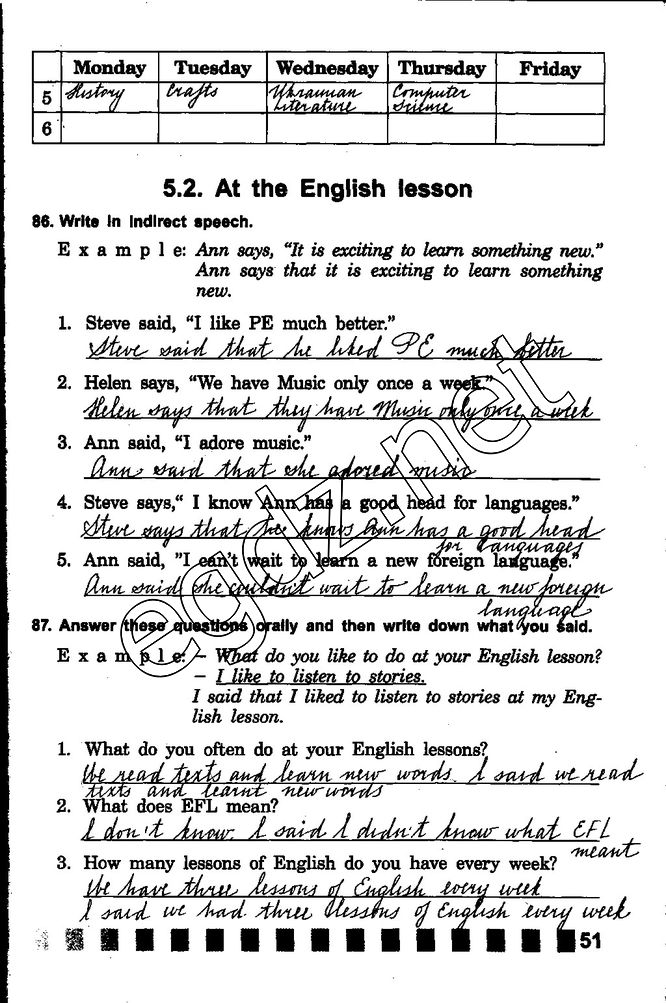 Monday Tuesday Wednesday Thursday Friday
5 History Crafts Ukrainian Literature Computer Science
6
5.2. At the English lesson
86. Write in indirect speech.
E x a m p l e: Ann says, “It is exciting to learn something new.”
Ann says that it is exciting to learn something
new.
1. Steve said, “I like PE much better.”
Steve said that he liked PE much better
2. Helen says, “We have Music only once a week.”
Helen says that they have Music only once a week
3. Ann said, “I adore music.”
Ann said that she adored music
4. Steve says,“ I know Ann has a good head for languages.”
Steve says that he knows Ann has a good head
for languages
5. Ann said, ”I can’t wait to learn a new foreign language.”
Ann said she couldn't wait to learn a new foreign
language
87. Answer these questions orally and then write down what you said.
E x a m p l e: – What do you like to do at your English lesson?
– I like to listen to stories.
I said that I liked to listen to stories at my Eng-
lish lesson.
1. What do you often do at your English lessons?
We read texts and learn new words. I said we read
texts and learnt new words
2. What does EFL mean?
I don't know. I said I didn't know what EFL
meant
3. How many lessons of English do you have every week?
We have three lessons of English every week
I said we had three lessons of English every week
51
egdz.net